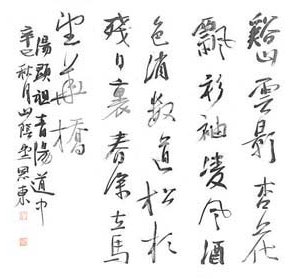 谿山雲影杏花
飄衫袖凌風酒
色消數道松杉
殘日裏春深立馬
望華橋
湯顯祖青陽道中
辛巳秋月山陰